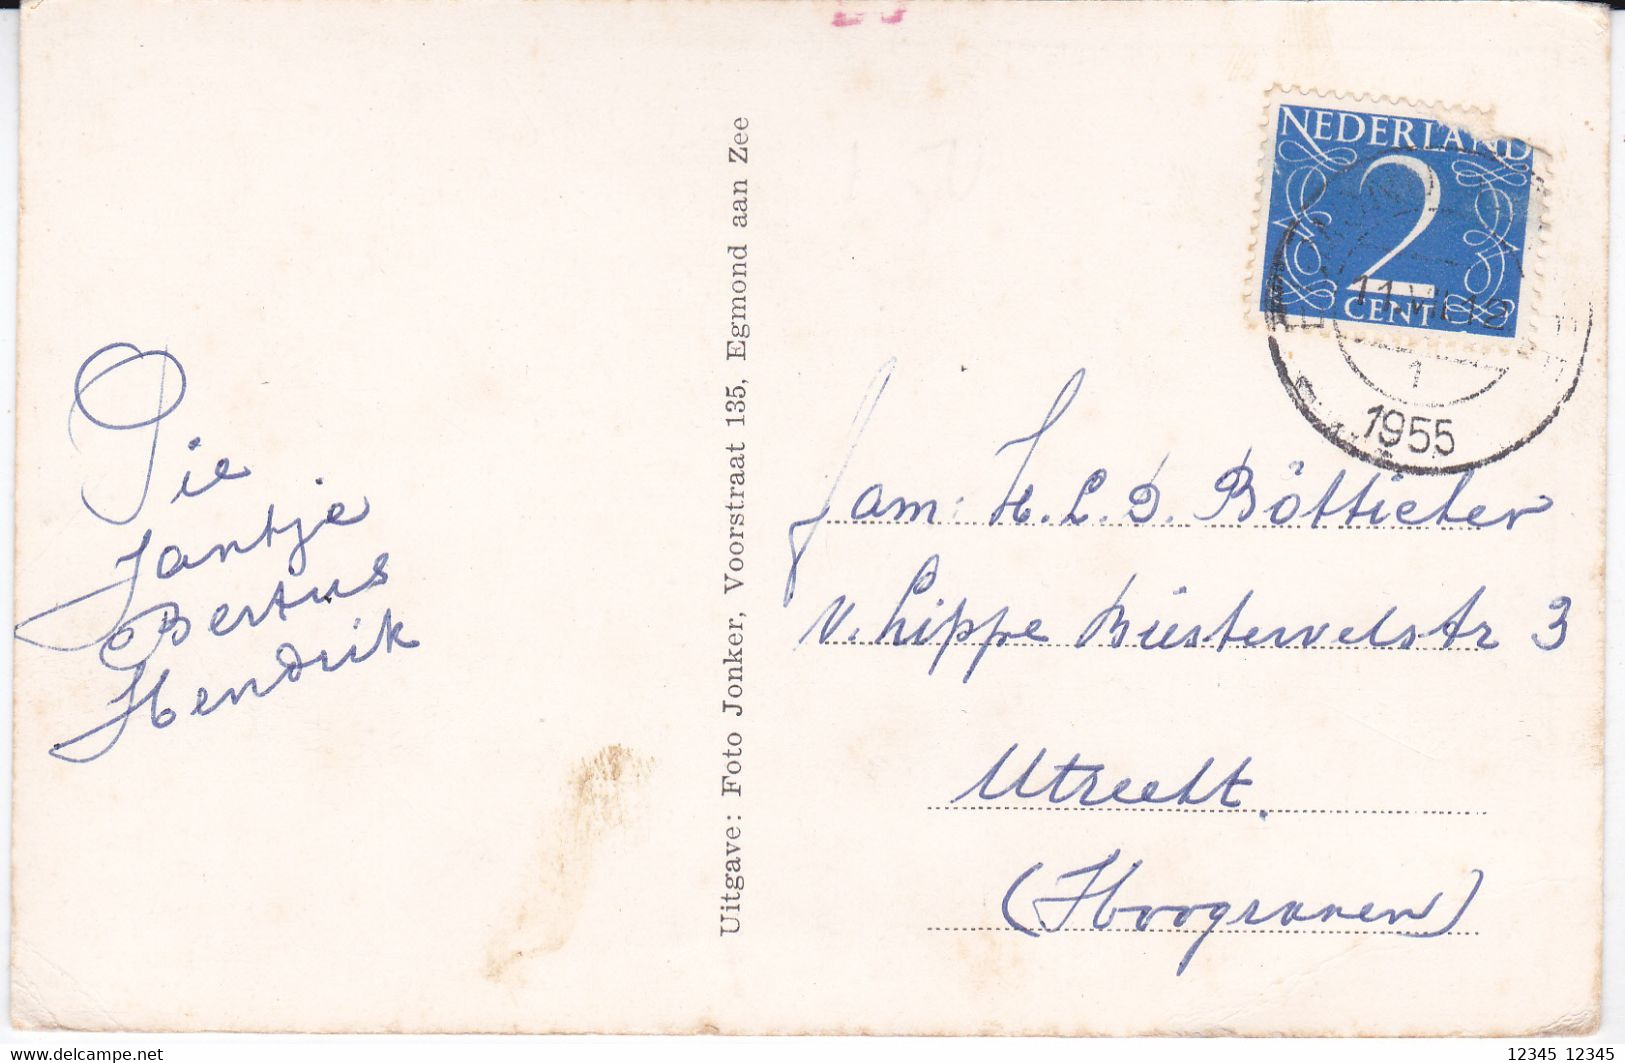 Pie
Jantje
Bertus
Hendrik
Uitgave: Foto Jonker, Voorstraat 135, Egmond aan Zee
NEDERLAND
2
CENT
11.VII.12
1
1955
Fam: H.L.D. Bötticher
v. Lippe Biestervelstr 3
Utrecht.
(Hoograven)
www.delcampe.net
12345 12345